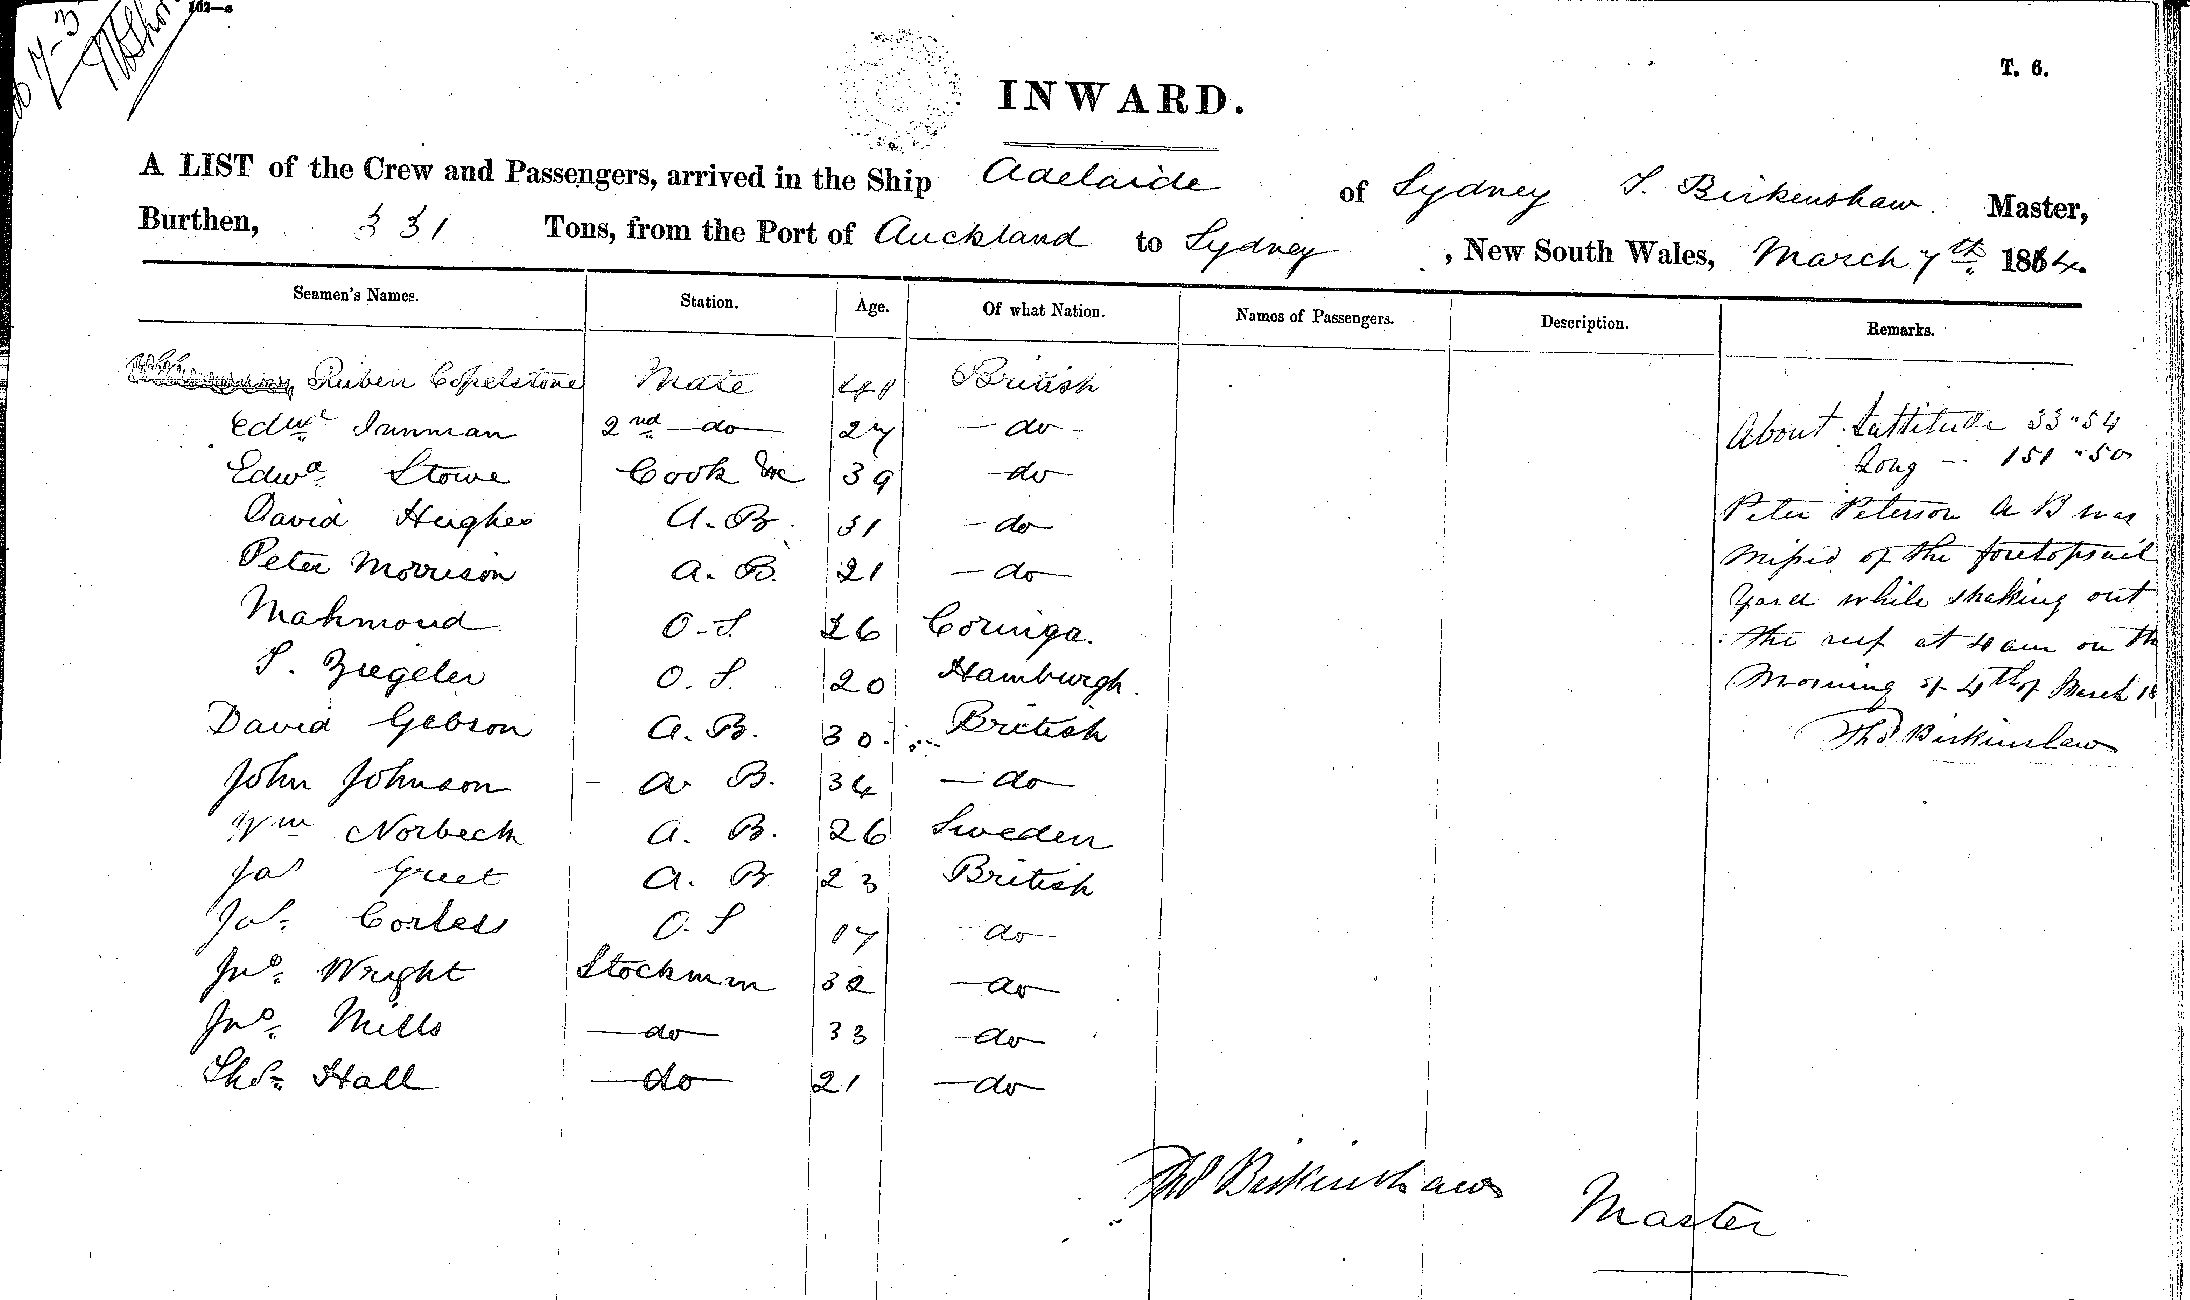 102—c
T. 6.
INWARD.
A LIST of the Crew and Passengers, arrived in the Ship Adelaide of Sydney T. Birkenshaw Master,
Burthen, 331 Tons, from the Port of Auckland to Sydney, New South Wales, March 7th 1864.
Seamen's Names. Station. Age. Of what Nation. Names of Passengers. Description. Remarks.
Ruben Copelstone Mate British
Edwd Innman 2nd do 27 do
About Lattitude 33"54
Edwd Stowe Cook &c 39 do
Long 151"50
David Hughes A.B. 31 do
Peter Peterson A B was
Peter Morrison A.B. 21 do
missed of the foretopsail
Mahmoud O.S. 26 Coringa.
Yard while shaking out
the reef at 4 am on the
S. Ziegeler O.S. 20 Hamburgh.
Morning of 4th of March 18
David Gebson A.B. 30 British
Thos Birkinshaw
John Johnson A B. 34 do
Wm Norbeck A.B. 26 Sweden
Jas Greet A.B 23 British
Jos. Corless O.S 17 do
Jno. Wright Stockman 32 do
Jno. Mills do 33 do
Thos. Hall do 21 do
Thos Birkinshaw Master